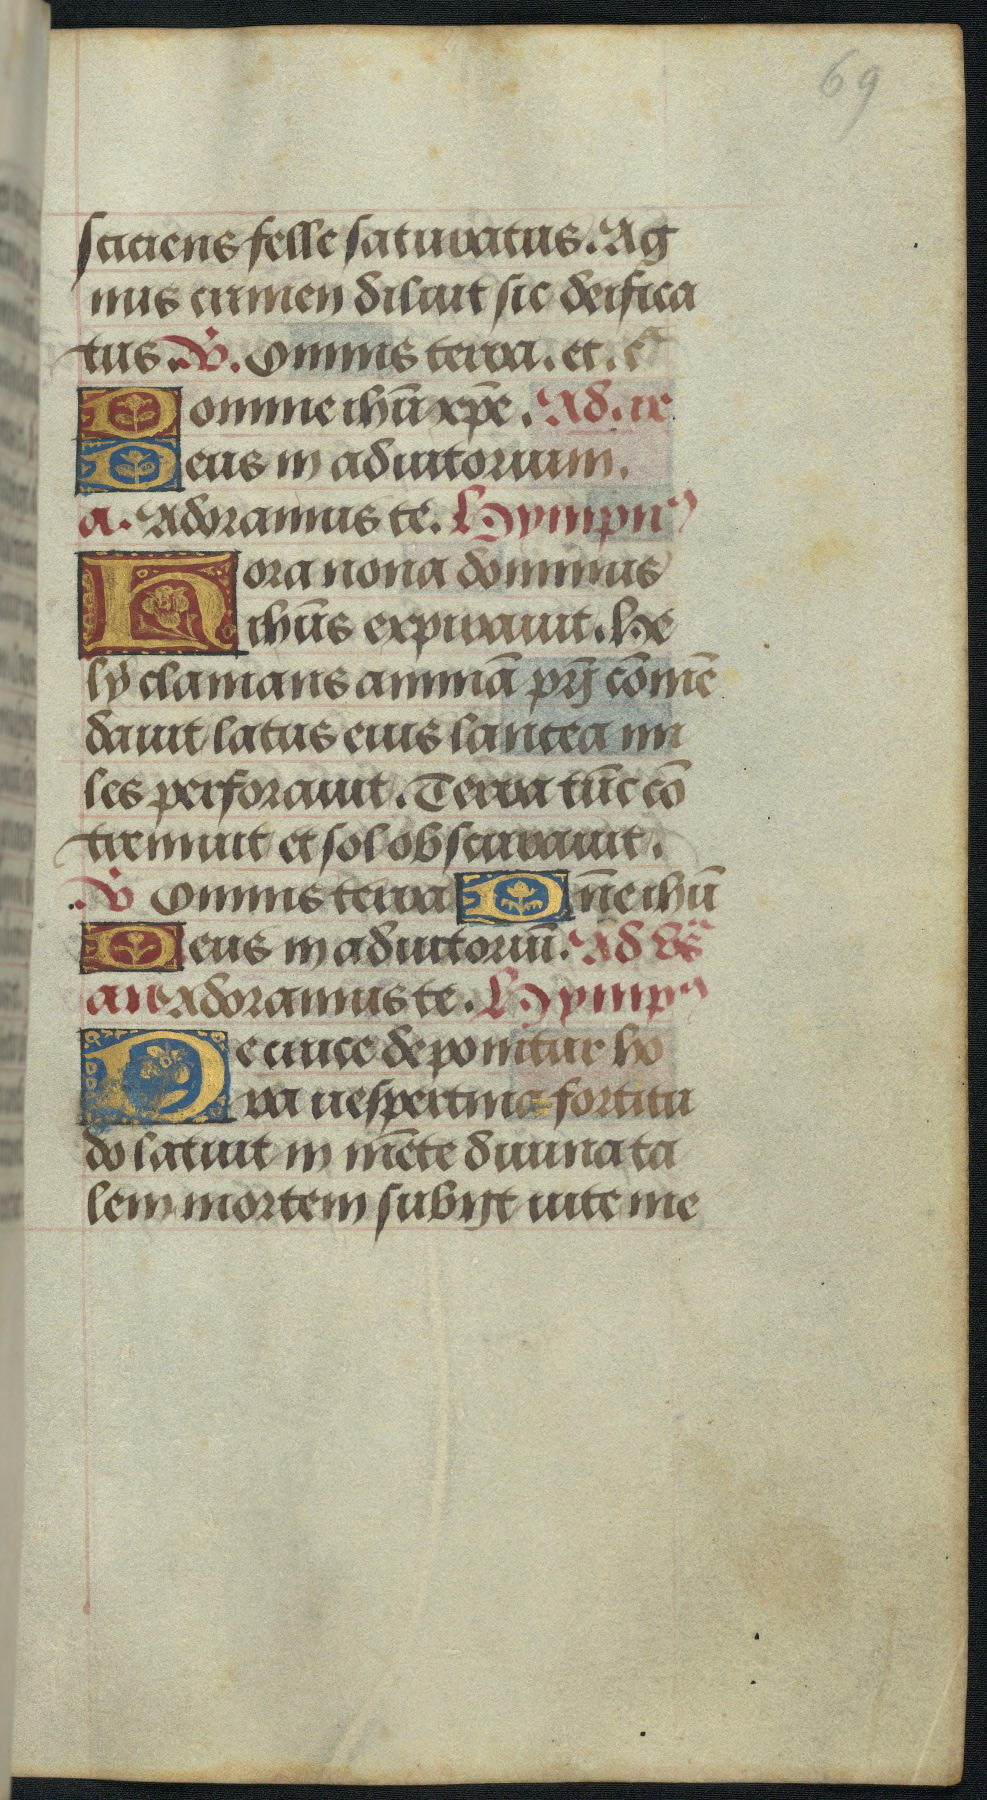 69
sciciens felle saturatus. Ag
nus crimen diluit sic deifica
tus. V. Omnis terra. et. cͣ
Domine ihū xp̄e. Ad. ix
Deus in adiutorium.
a. Adoramus te. Hympn9
Hora nona dominus
ihūs expirauit. He
ly clamans animā prĳ cōmē
dauit latus eius lancea mi
les perforauit. Terra tūc cō
tremuit et sol obscurauit.
V Omnis terra Dn̄e ihū
Deus in adiutoriū. Ad vs̄
an Adoramus te. Hymp9
De cruce deponitur ho
ra uespertina fortitu
do latuit in mēte diuina ta
lem mortem subijt uite me